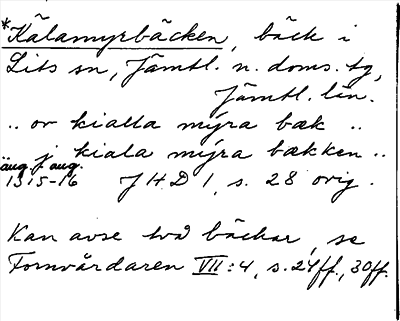 *Kälamyrbäcken, bäck i
Lits sn, Jämtl. n. doms. tg,
Jämtl. län.
.. or kialla myra bæk ..
j kiala myra bækken ..
äng. j aug.
1315-16 JHD 1, s. 28 orig.
Kan avse två bäckar, se
Fornvårdaren VII:4, s. 24ff., 30ff.